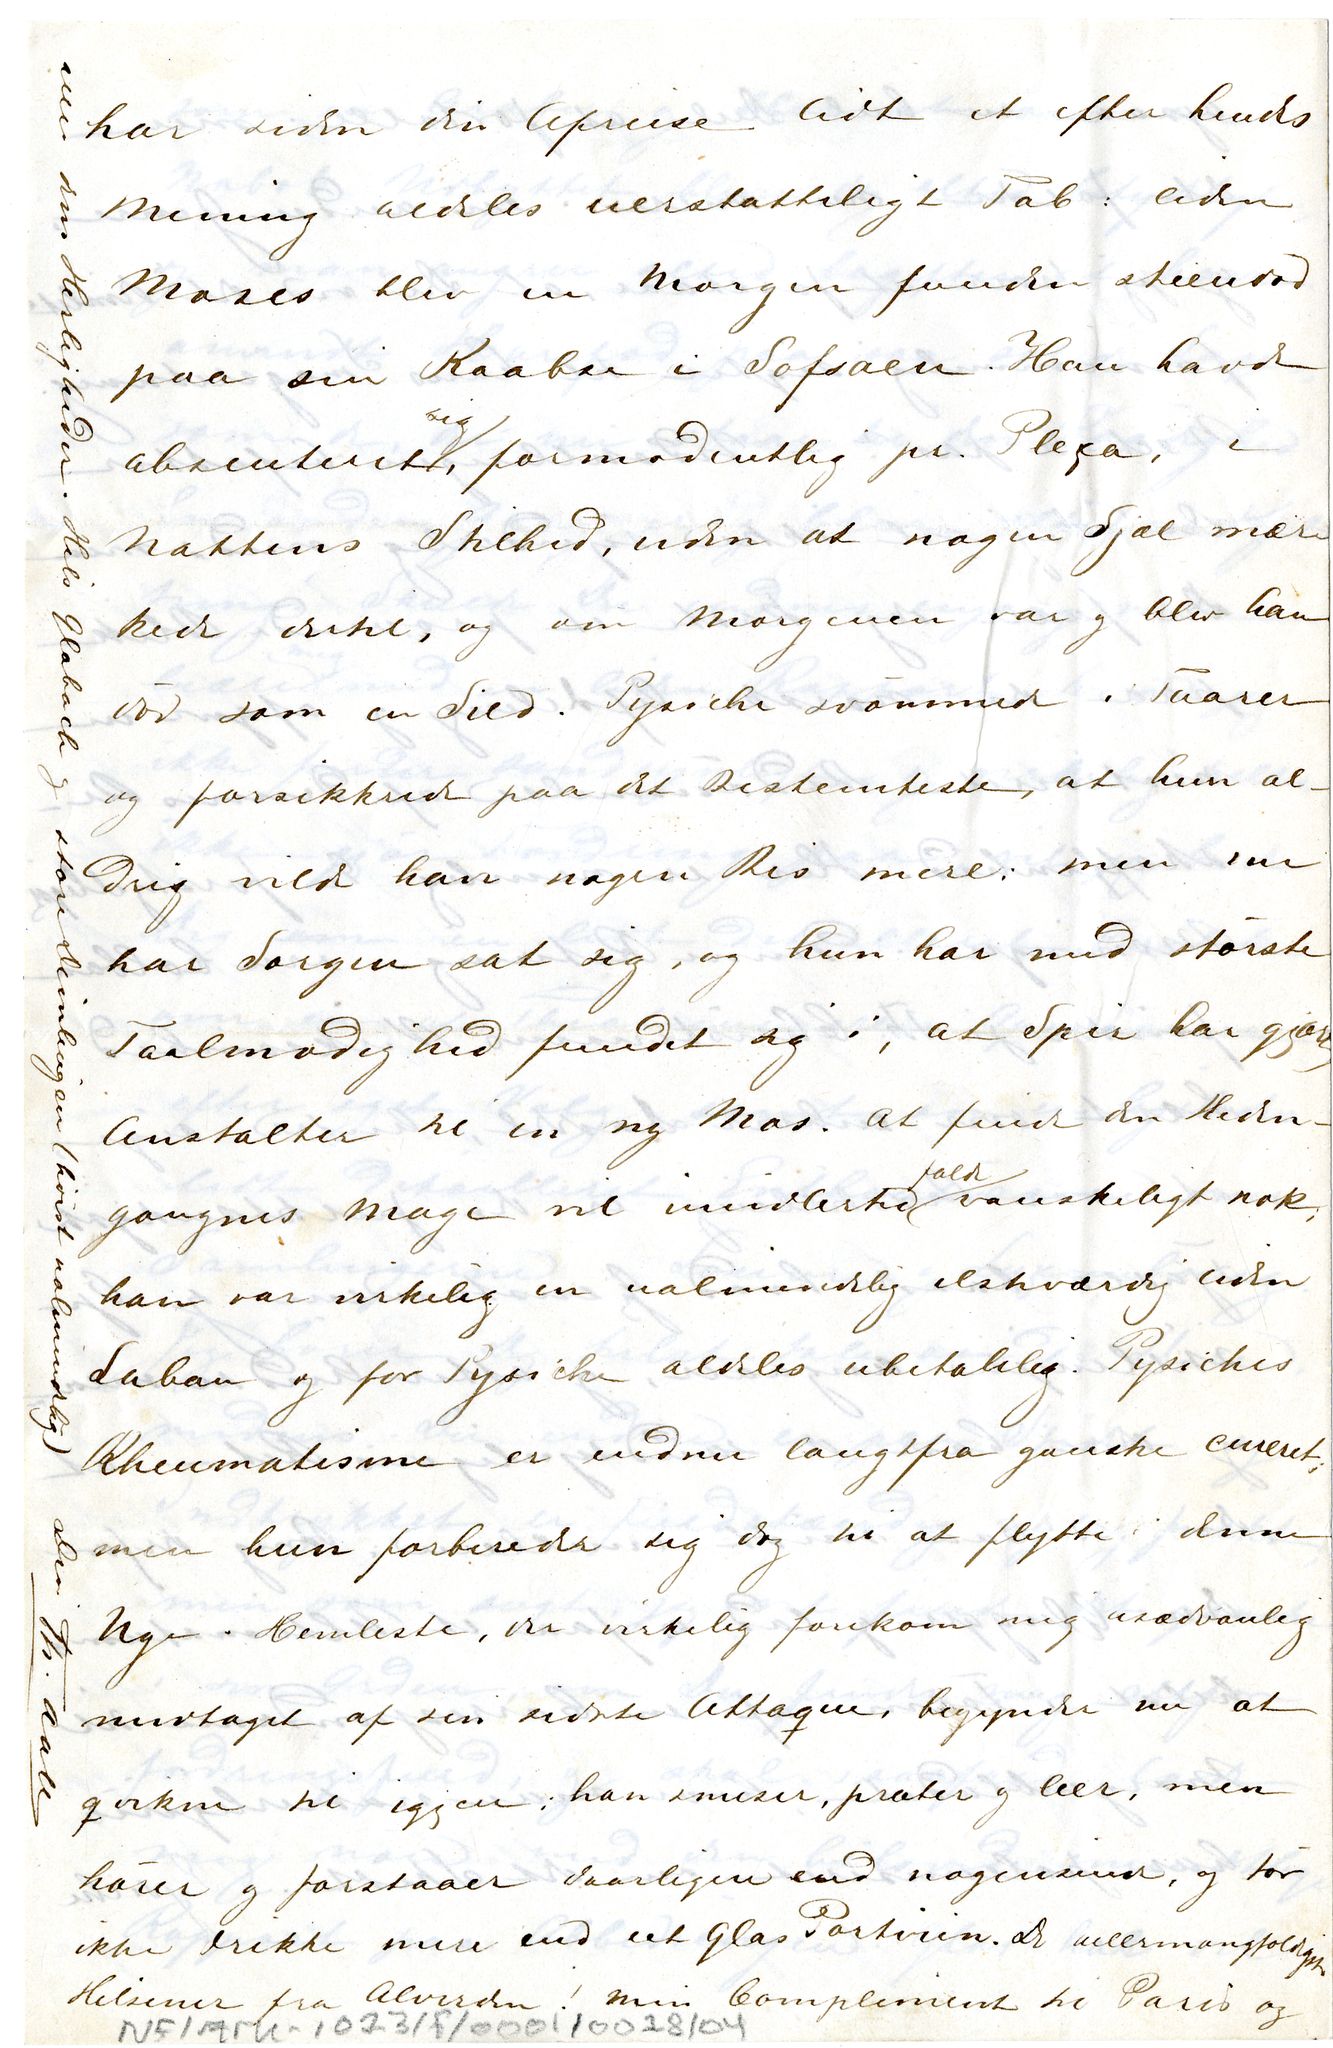 har siden din Afreise lidt et efter hendes
Mening aldeles uerstatteligt Tab: liden
Moses blev en Morgen funden steendød
paa sin Kaabse i Sofsaen. Han havde
absenteret sig, formodentlig pr. Plexa, i
Nattens Stilhed, uden at nogen Sjæl mær-
kede dertil, og om Morgenen var og blev han
död som en Sild. Pysiche svömmede i Taarer
og forsikkrede paa det Bestemteste, at hun al-
drig vilde have nogen Bis mere: men nu
har Sorgen sat sig, og hun har med störste
Taalmodighed fundet sig i, at Spir har gjort
Anstalter til en ny Mos. At finde den Heden-
gangnes Mage vil imidlertid falde vanskeligt nok,
han var virkelig en ualmindelig elskværdig liden
Laban og for Pysiche aldeles ubetalelig. Pysiches
Rheumatisme er endnu langtfra ganske cureret;
men hun forbereder sig dog til at flytte i denne
Uge. Hemleste, der virkelig forekom mig usædvanlig
medtaget af sin sidste Attaque, begynder nu at
qvikne til igjen; han smiser, prater og leer, men
hører og forstaaer daarligere end nogensinde, og tör
ikke drikke mere end et Glas Portviin. De allermangfoldigste
Hilsener fra Alverden! Min Compliment til Paris og
alle dens Herligheder. Hils Glabach og store Vinhujen (hvist valmindelig)
Din Th. Aall
NF/Ark-1023/F/0001/0028/04